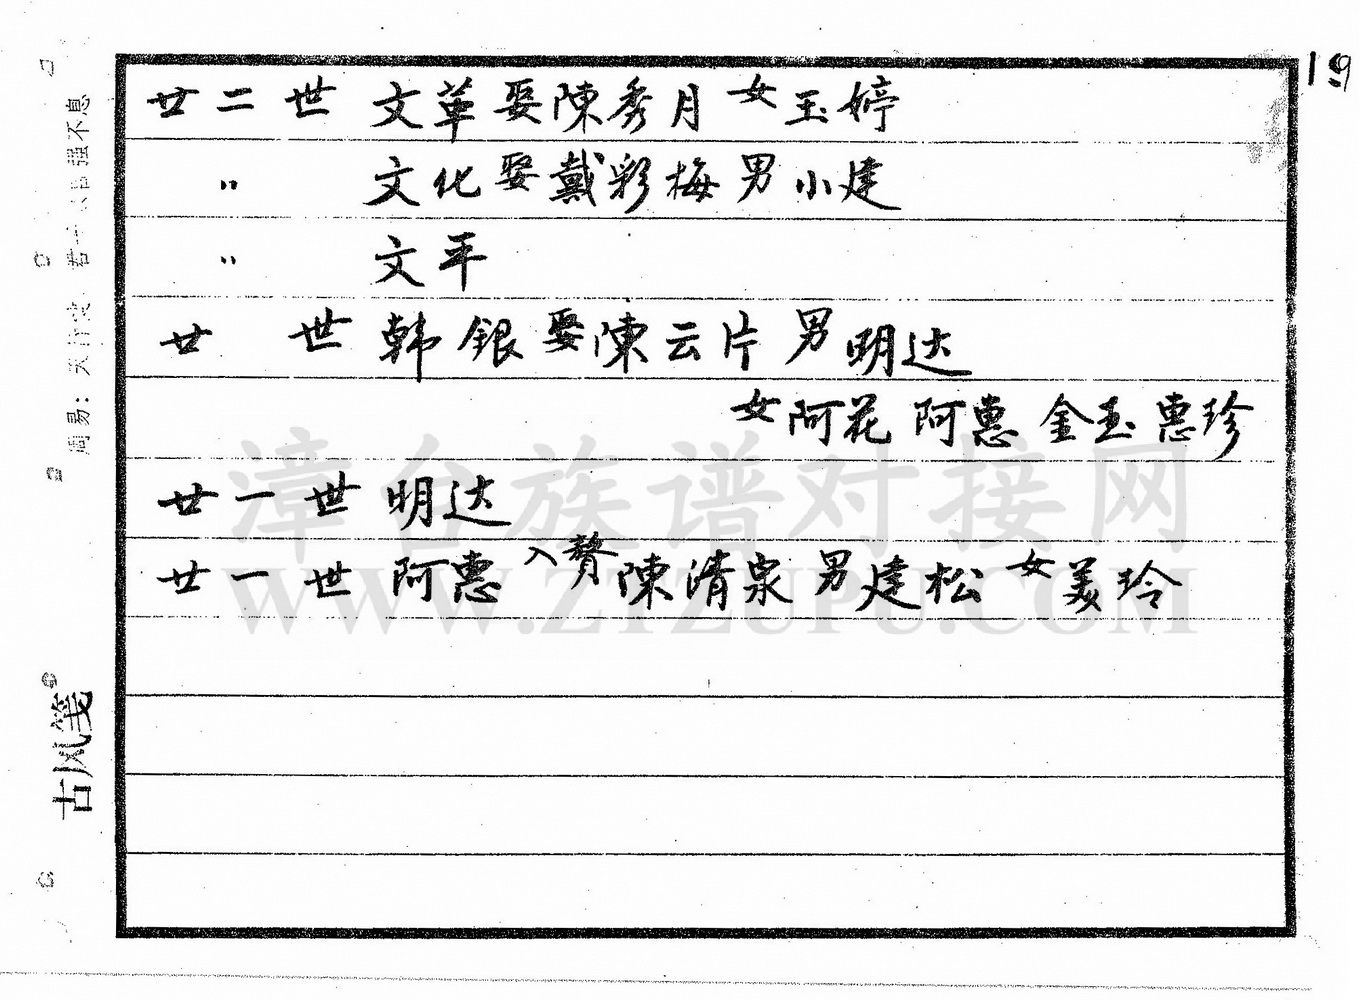 19
廿二世 文革娶陳秀月 女玉婷
〃 文化娶戴彩梅 男小建
〃 文平
廿 世 韩銀娶陳云片 男明达
女阿花 阿惠 金玉 惠珍
廿一世 明达
廿一世 阿惠入贅陳清泉 男建松 女美玲
周易：天行 君 强不息
古风笺
漳台族谱对接网
WWW.ZTZUPU.COM